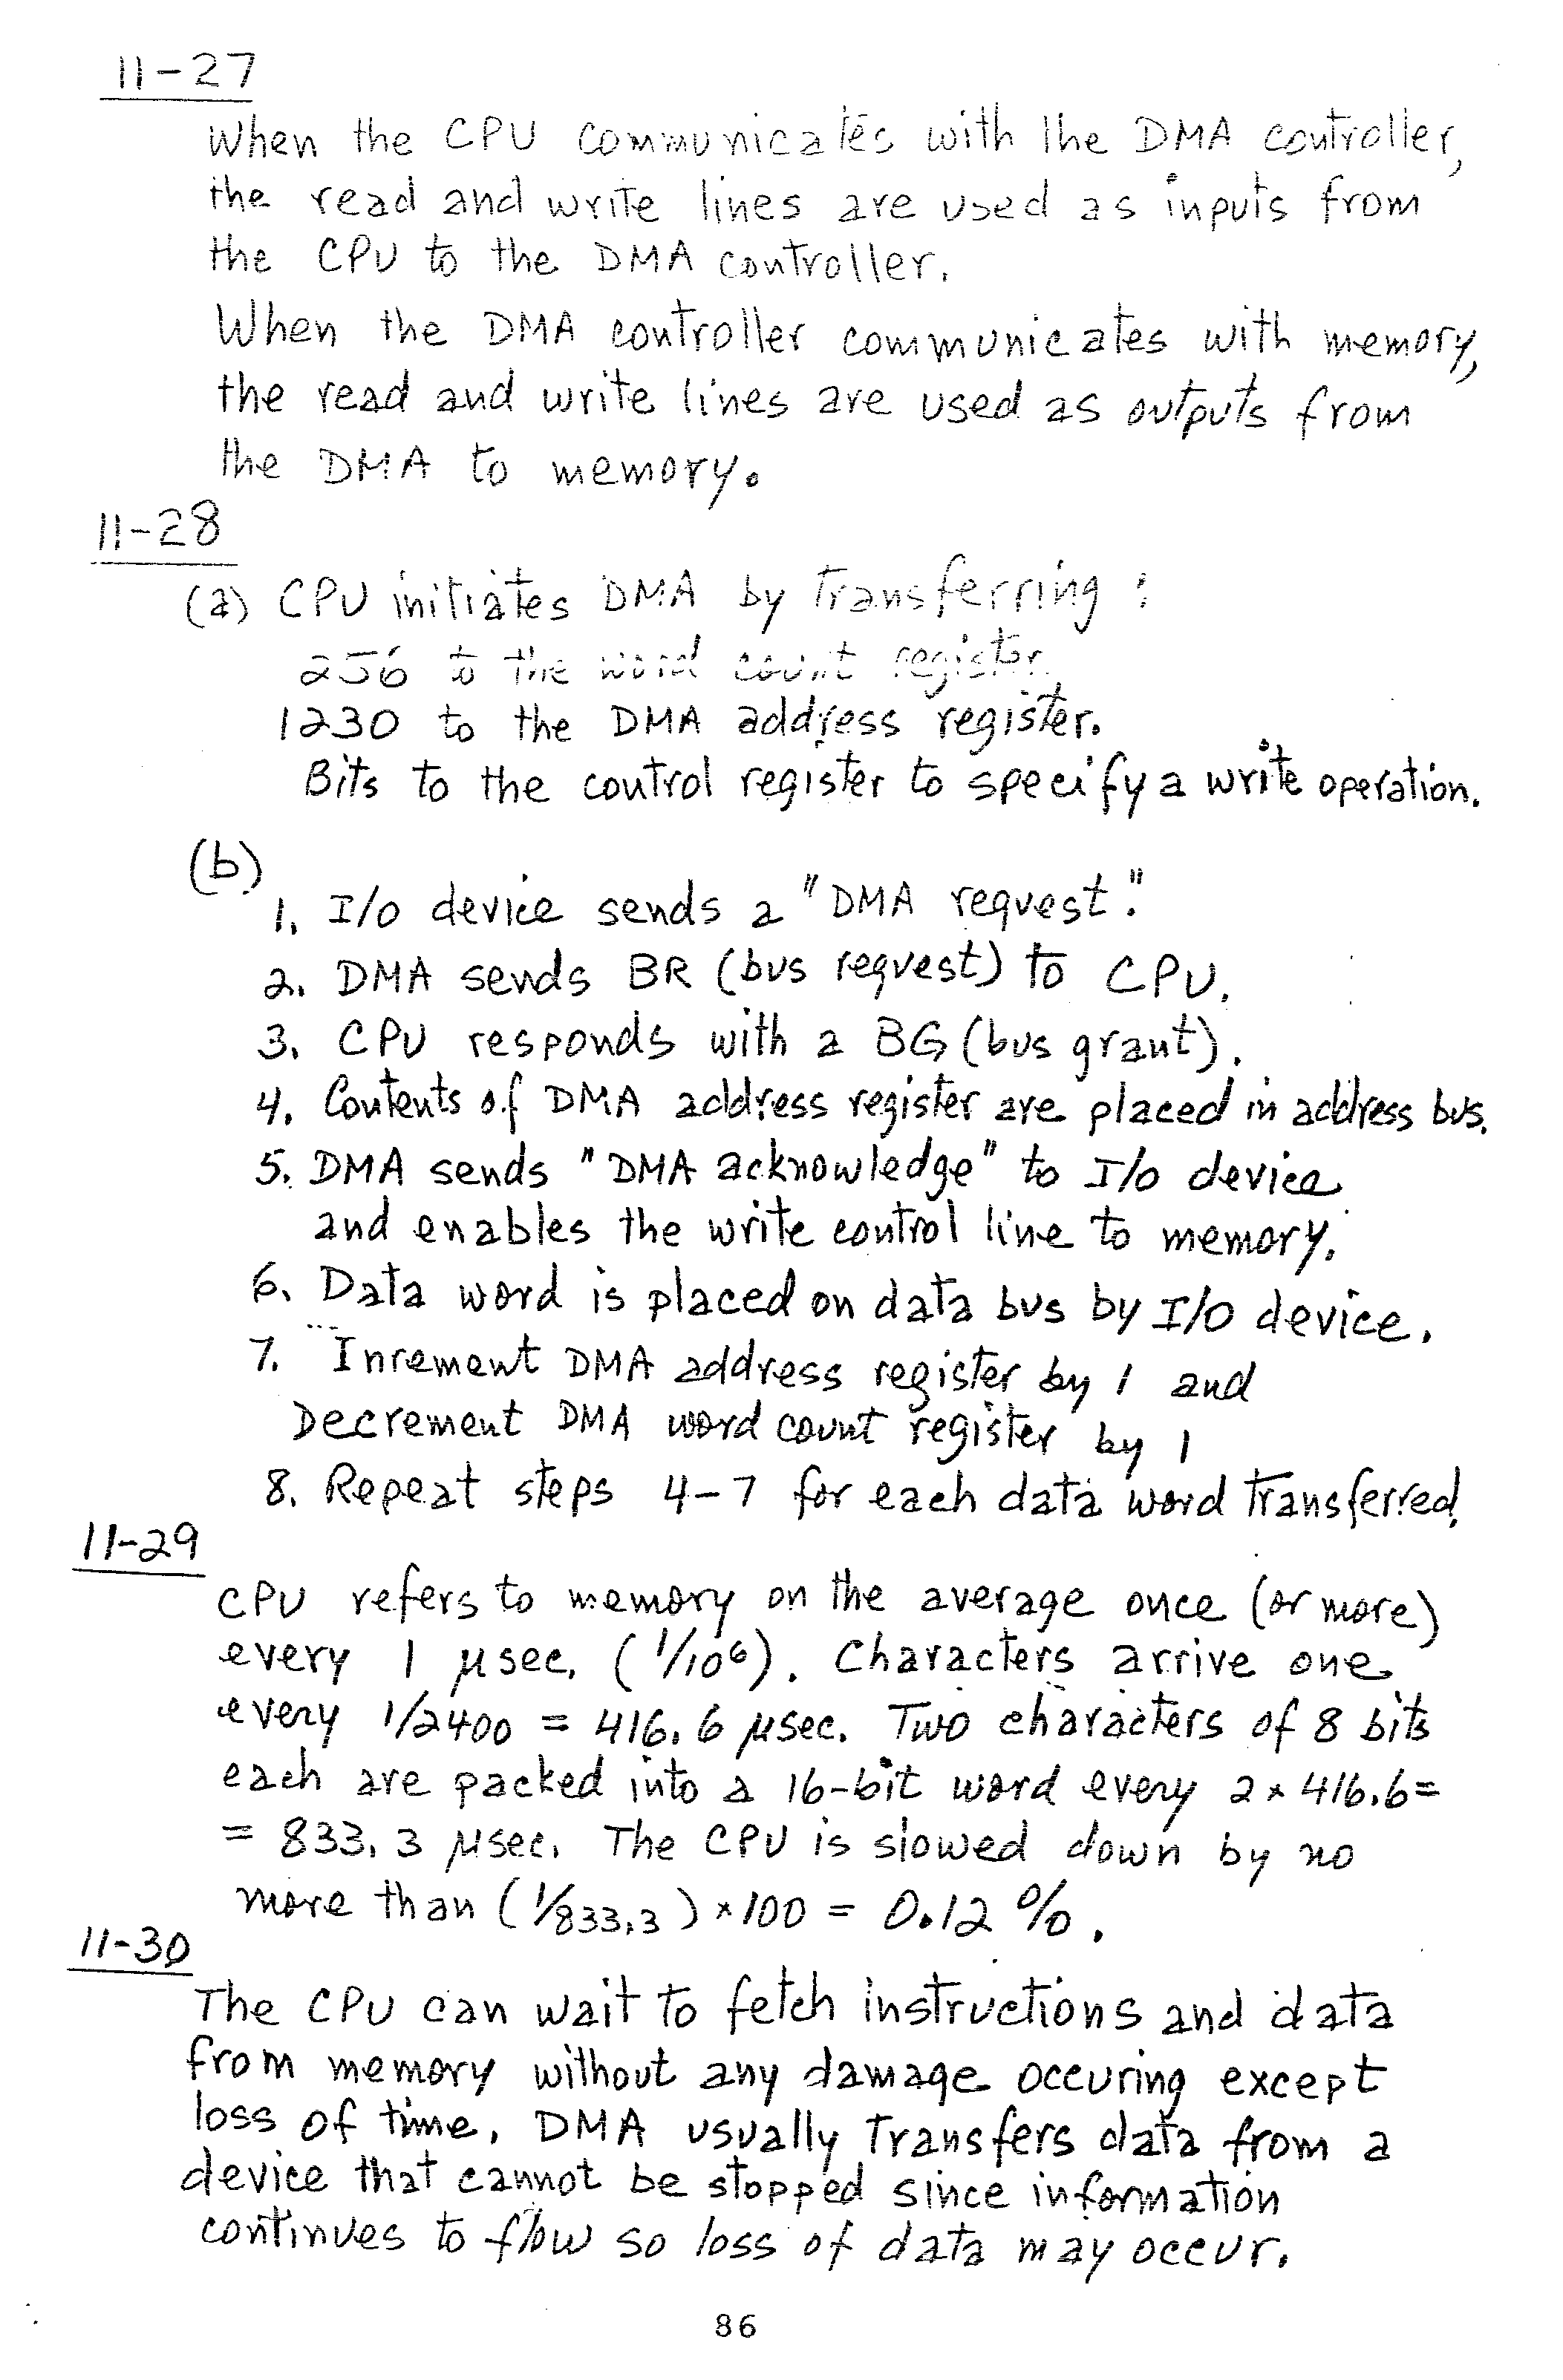 11-27
When the CPU communicates with the DMA controller,
the read and write lines are used as inputs from
the CPU to the DMA controller.
When the DMA controller communicates with memory,
the read and write lines are used as outputs from
the DMA to memory.
11-28
(a) CPU initiates DMA by transferring :
256 to the word count register.
1230 to the DMA address register.
Bits to the control register to specify a write operation.
(b)
1. I/O device sends a "DMA request."
2. DMA sends BR (bus request) to CPU.
3. CPU responds with a BG (bus grant).
4. Contents of DMA address register are placed in address bus.
5. DMA sends "DMA acknowledge" to I/O device
and enables the write control line to memory.
6. Data word is placed on data bus by I/O device.
7. Inrement DMA address register by 1 and
Decrement DMA word count register by 1
8. Repeat steps 4-7 for each data word Transferred.
11-29
CPU refers to memory on the average once (or more)
every 1 μsec. (1/10⁶). Characters arrive one
every 1/2400 = 416.6 μsec. Two characters of 8 bits
each are packed into a 16-bit word every 2 × 416.6 =
= 833.3 μsec. The CPU is slowed down by no
more than (1/833.3) × 100 = 0.12 %.
11-30
The CPU can wait to fetch instructions and data
from memory without any damage occuring except
loss of time. DMA usually Transfers data from a
device that cannot be stopped since information
continues to flow so loss of data may occur.
86